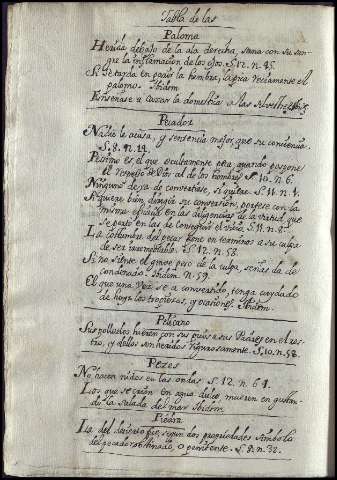 Tabla de las
Paloma
Herida debajo de la ala derecha, sana con su san-
gre la inflamacion de los ojos. S. 12. n. 45.
Si se tarda en parir la hembra, la pica reciamente el
palomo. Ibidem
Enseñase a cazar la domestica a las silvestres.
Pecador
Nadie le acusa, y sentencia mejor que su conciencia.
S. 8. n. 14.
Pesimo es el que ocultamente peca quando pospone
el respeto de Dios al de los hombres. S. 10. n. 6.
Ninguno deja de convertirse, si quiere. S. 11. n. 1.
Si quiere bien dirigir su conversion, portese con la
misma eficacia en las diligencias de la virtud, que
se portò en las de conseguir el vicio. S. 11. n. 8.
La costumbre del pecar pone en terminos a su culpa
de ser irremediable. S. 12. n. 58.
Si no siente el grave peso de la culpa, señas da de
condenado. Ibidem. n. 59.
El que una vez se a convertido, tenga cuydado
de huyr los tropiesos, y ocasiones. Ibidem.
Pelicano
Sus polluelos hieren con sus picos a sus Padres en el ros-
tro, y dellos son heridos rigurosamente. S. 10. n. 58.
Pezes
No hacen nidos en las ondas. S. 12. n. 61.
Los que se crian en agua dulce, mueren en gustan-
do la salada del mar Ibidem.
Piedra
La del desierto fue, segun dos propiedades simbolo
del pecador obstinado, o penitente. S. 8. n. 32.